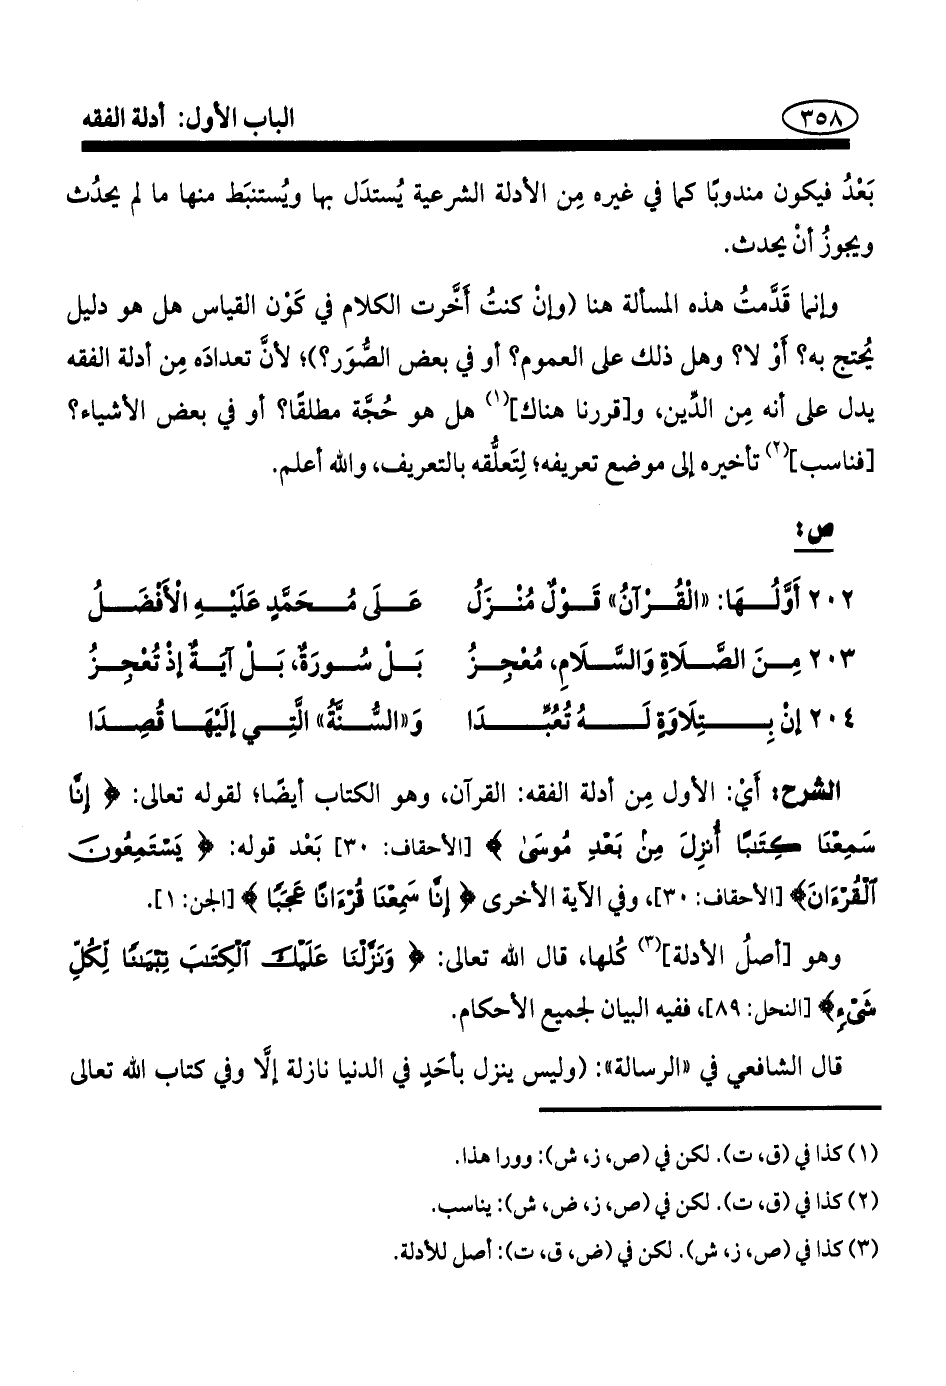 ٣٥٨ الباب الأول: أدلة الفقه
بَعْدُ فيكون مندوبًا كما في غيره مِن الأدلة الشرعية يُستدَل بها ويُستنبَط منها ما لم يحدُث
ويجوزُ أنْ يحدث.
وإنما قَدَّمتُ هذه المسألة هنا (وإنْ كنتُ أَخَّرت الكلام في كَوْن القياس هل هو دليل
يُحتج به؟ أَوْ لا؟ وهل ذلك على العموم؟ أو في بعض الصُّوَر؟)؛ لأنَّ تعدادَه مِن أدلة الفقه
يدل على أنه مِن الدِّين، و[قررنا هناك](١) هل هو حُجَّة مطلقًا؟ أو في بعض الأشياء؟
[فناسب](٢) تأخيره إلى موضع تعريفه؛ لِتَعلُّقه بالتعريف، والله أعلم.
ص:
٢٠٢ أَوَّلُـهَا: «الْقُرْآنُ» قَوْلٌ مُنْزَلُ عَلَى مُـحَمَّدٍ عَلَيْهِ الْأَفْضَلُ
٢٠٣ مِنَ الصَّلَاةِ وَالسَّلَامِ، مُعْجِزُ بَلْ سُورَةٌ، بَلْ آيَةٌ إذْ تُعْجِزُ
٢٠٤ إنْ بِتِلَاوَةٍ لَهُ تُعُبِّدَا وَ«السُّنَّةُ» الَّتِي إلَيْهَا قُصِدَا
الشرح: أَيْ: الأول مِن أدلة الفقه: القرآن، وهو الكتاب أيضًا؛ لقوله تعالى: ﴿ إِنَّا
سَمِعْنَا كِتَٰبًا أُنزِلَ مِنۢ بَعْدِ مُوسَىٰ ﴾ [الأحقاف: ٣٠] بَعْد قوله: ﴿ يَسْتَمِعُونَ
ٱلْقُرْءَانَ﴾ [الأحقاف: ٣٠]، وفي الآية الأخرى ﴿ إِنَّا سَمِعْنَا قُرْءَانًا عَجَبًا ﴾ [الجن: ١].
وهو [أصلُ الأدلة](٣) كُلها، قال الله تعالى: ﴿ وَنَزَّلْنَا عَلَيْكَ ٱلْكِتَٰبَ تِبْيَٰنًا لِّكُلِّ
شَىْءٍ﴾ [النحل: ٨٩]، ففيه البيان لجميع الأحكام.
قال الشافعي في «الرسالة»: (وليس ينزل بأحَدٍ في الدنيا نازلة إلَّا وفي كتاب الله تعالى
(١) كذا في (ق، ت). لكن في (ص، ز، ش): وورا هذا.
(٢) كذا في (ق، ت). لكن في (ص، ز، ض، ش): يناسب.
(٣) كذا في (ص، ز، ش). لكن في (ض، ق، ت): أصل للأدلة.